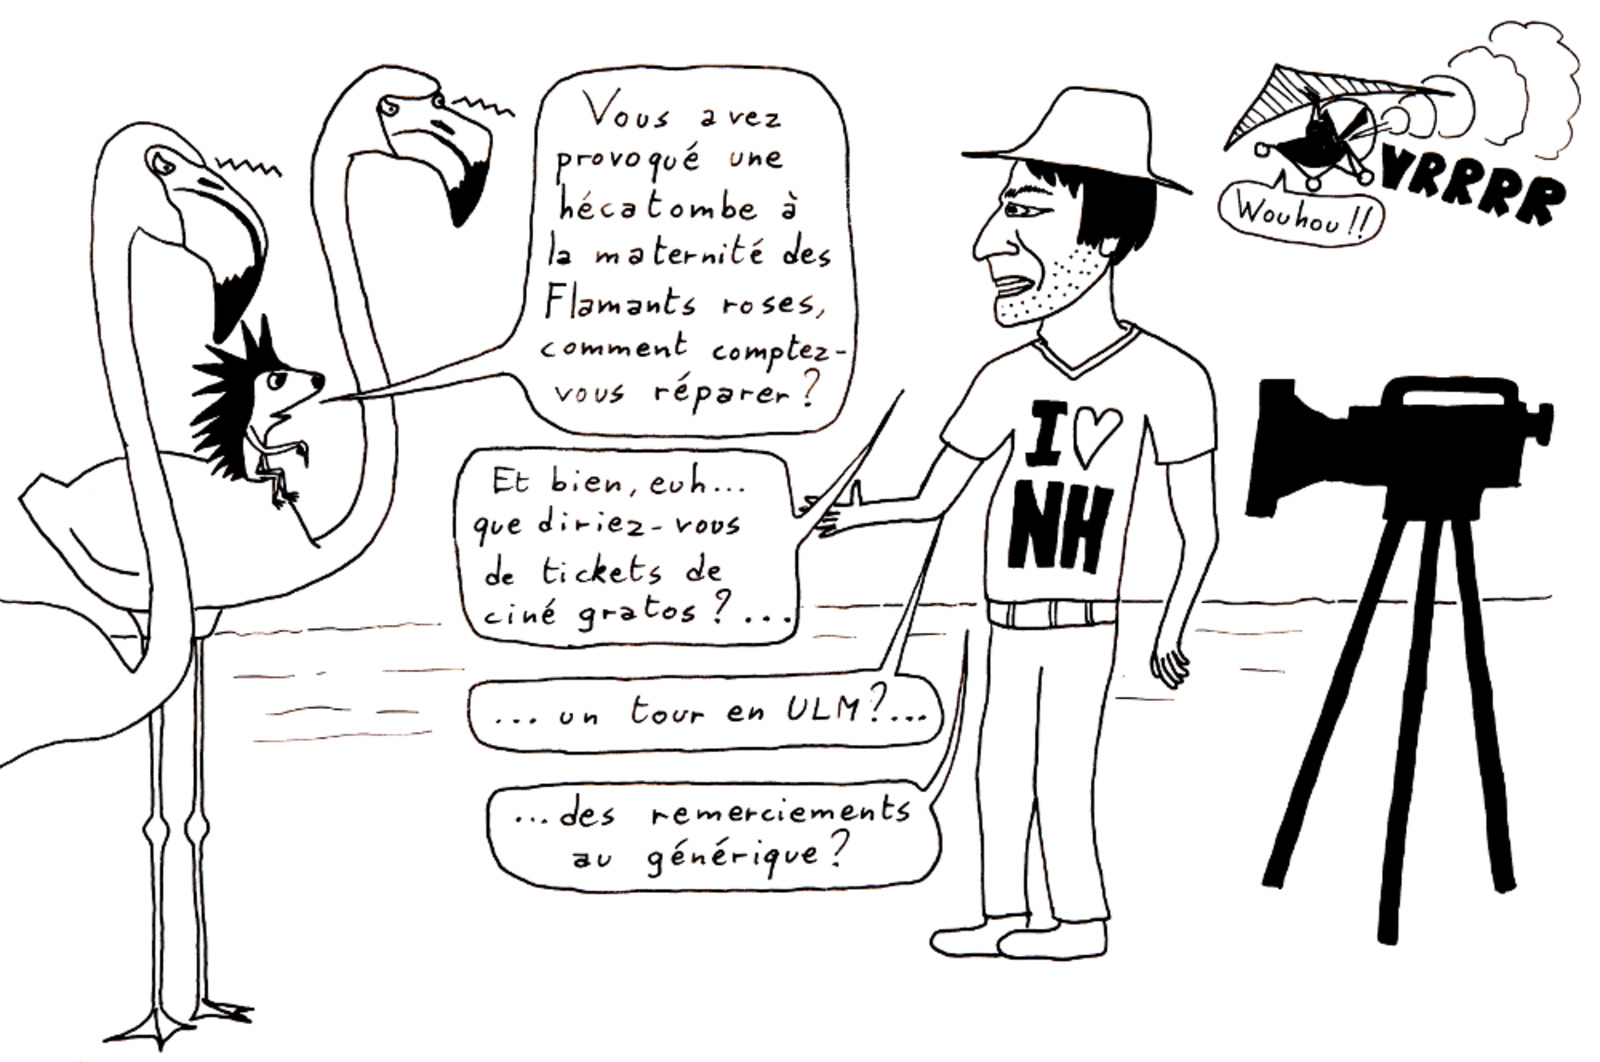 Vous avez
provoqué une
hécatombe à
la maternité des
Flamants roses,
comment comptez-
vous réparer ?
Et bien, euh...
que diriez-vous
de tickets de
ciné gratos ? ...
... un tour en ULM ? ...
... des remerciements
au générique ?
Wouhou !!
VRRRR
I ♡
NH